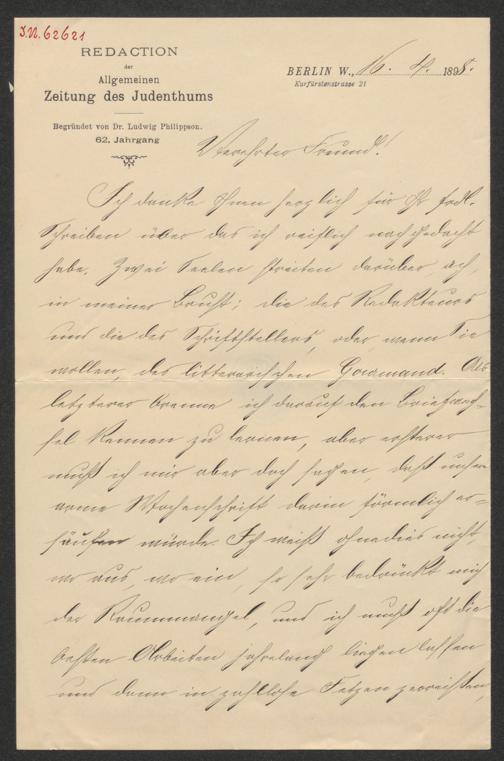 I.N. 62621
REDACTION
der
Allgemeinen
Zeitung des Judenthums
Begründet von Dr. Ludwig Philippson.
62. Jahrgang
BERLIN W., 16. 4. 1898.
Kurfürstenstrasse 21
Verehrter Freund!
Ich danke Ihnen herzlich für Ihr frdl.
Schreiben über das ich reiflich nachgedacht
habe. Zwei Seelen streiten darüber, ach,
in meiner Brust; die des Redakteurs
und die des Schriftstellers, oder, wenn Sie
wollen, des litterarischen Gourmand. Als
letzterer brenne ich darauf den Briefwech-
sel kennen zu lernen, aber ersterer
muß ich mir aber doch sagen, daß unsere
arme Wochenschrift darin förmlich er-
säufen würde. Ich weiß ohnedies nicht,
wo aus, wo ein, so sehr bedrückt mich
der Raummangel, und ich muß oft die
besten Arbeiten jahrelang liegen lassen
und dann in zahllose Fetzen zerreißen,